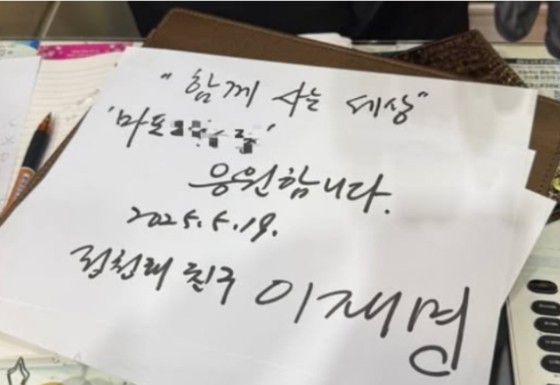 "함께 사는 세상"
'마포
응원합니다.
2025.5.19.
친구 이재명